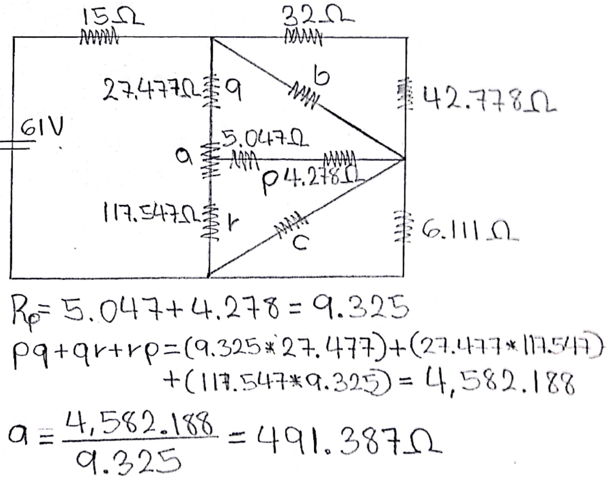 15Ω 32Ω
27.477Ω q b 42.778Ω
61V
a 5.047Ω
p 4.278Ω
117.547Ω r c 6.111Ω
Rp= 5.047+4.278 = 9.325
pq+qr+rp=(9.325*27.477)+(27.477*117.547)
+(117.547*9.325) = 4,582.188
a = 4,582.188 / 9.325 = 491.387Ω